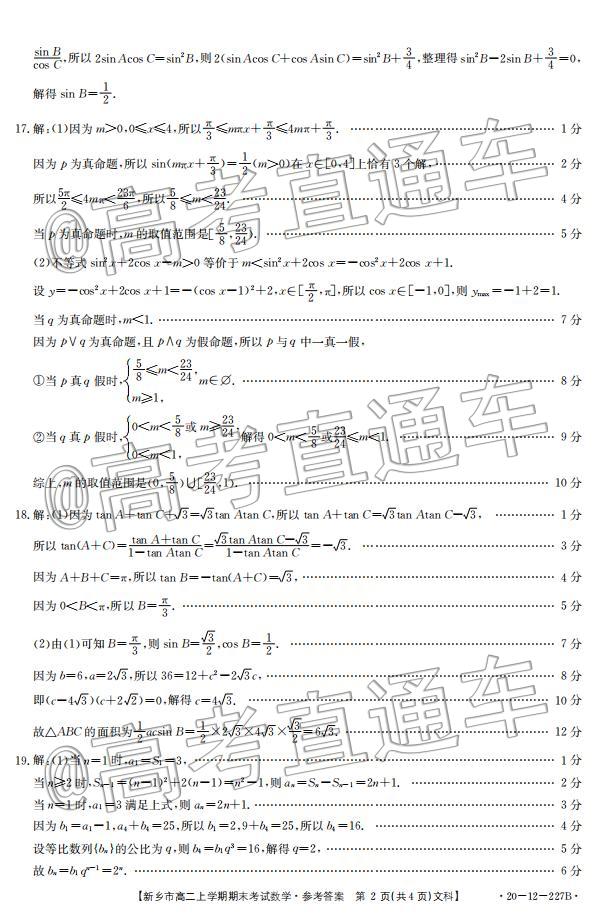 sin B/cos C,所以 2sin Acos C=sin²B,则 2(sin Acos C+cos Asin C)=sin²B+3/4,整理得 sin²B-2sin B+3/4=0,
解得 sin B=1/2.
17.解:(1)因为 m>0,0≤x≤4,所以 π/3≤mπx+π/3≤4mπ+π/3. …… 1 分
因为 p 为真命题,所以 sin(mπx+π/3)=1/2(m>0)在 x∈[0,4]上恰有 3 个解, …… 2 分
所以 5π/2≤4mπ<23π/6,所以 5/8≤m<23/24. …… 4 分
当 p 为真命题时,m 的取值范围是[5/8,23/24). …… 5 分
(2)不等式 sin²x+2cos x-m>0 等价于 m<sin²x+2cos x=-cos²x+2cos x+1.
设 y=-cos²x+2cos x+1=-(cos x-1)²+2,x∈[π/2,π],所以 cos x∈[-1,0],则 yₘₐₓ=-1+2=1.
当 q 为真命题时,m<1. …… 7 分
因为 p∨q 为真命题,且 p∧q 为假命题,所以 p 与 q 中一真一假,
①当 p 真 q 假时,{5/8≤m<23/24, m≥1, m∈∅. …… 8 分
②当 q 真 p 假时,{0<m<5/8 或 m≥23/24, 0<m<1, 解得 0<m<5/8 或 23/24≤m<1. …… 9 分
综上,m 的取值范围是(0,5/8)∪[23/24,1). …… 10 分
18.解:(1)因为 tan A+tan C+√3=√3tan Atan C,所以 tan A+tan C=√3tan Atan C-√3, …… 1 分
所以 tan(A+C)=(tan A+tan C)/(1-tan Atan C)=(√3tan Atan C-√3)/(1-tan Atan C)=-√3. …… 3 分
因为 A+B+C=π,所以 tan B=-tan(A+C)=√3, …… 4 分
因为 0<B<π,所以 B=π/3. …… 5 分
(2)由(1)可知 B=π/3,则 sin B=√3/2,cos B=1/2. …… 7 分
因为 b=6,a=2√3,所以 36=12+c²-2√3c, …… 8 分
即(c-4√3)(c+2√3)=0,解得 c=4√3. …… 10 分
故△ABC 的面积为 1/2 acsin B=1/2×2√3×4√3×√3/2=6√3. …… 12 分
19.解:(1)当 n=1 时,a₁=S₁=3, …… 1 分
当 n≥2 时,Sₙ₋₁=(n-1)²+2(n-1)=n²-1,则 aₙ=Sₙ-Sₙ₋₁=2n+1. …… 2 分
当 n=1 时,a₁=3 满足上式,则 aₙ=2n+1. …… 3 分
因为 b₁=a₁-1,a₄+b₄=25,所以 b₁=2,9+b₄=25,所以 b₄=16. …… 4 分
设等比数列{bₙ}的公比为 q,则 b₄=b₁q³=16,解得 q=2, …… 5 分
故 bₙ=b₁qⁿ⁻¹=2ⁿ. …… 6 分
@高考直通车
@高考直通车
【新乡市高二上学期期末考试数学·参考答案 第 2 页(共 4 页)文科】 ·20-12-227B·